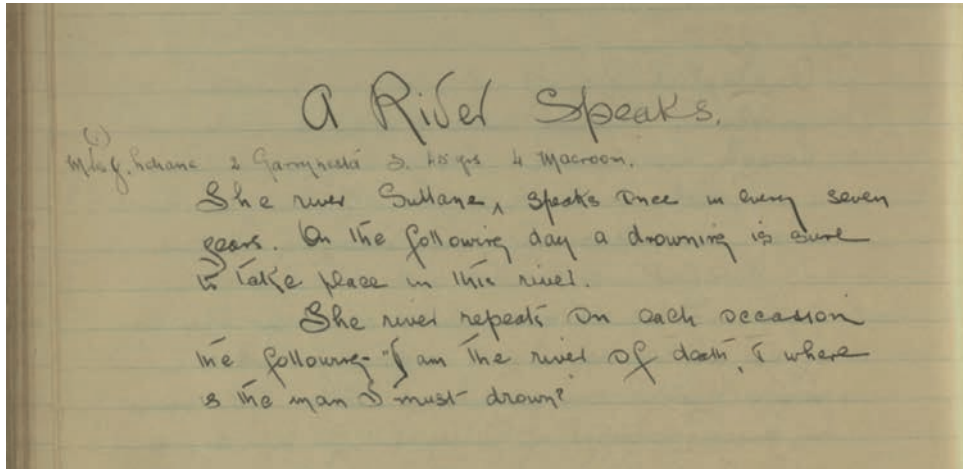 A River Speaks.
(1)
Mrs J. 2 3. 45 yrs 4 Macroon.
The river Sullane ^ speaks once in every seven
years. On the following day a drowning is sure
to take place in this river.
The river repeats on each occasion
the following - "I am the river of death, & where
is the man I must drown?